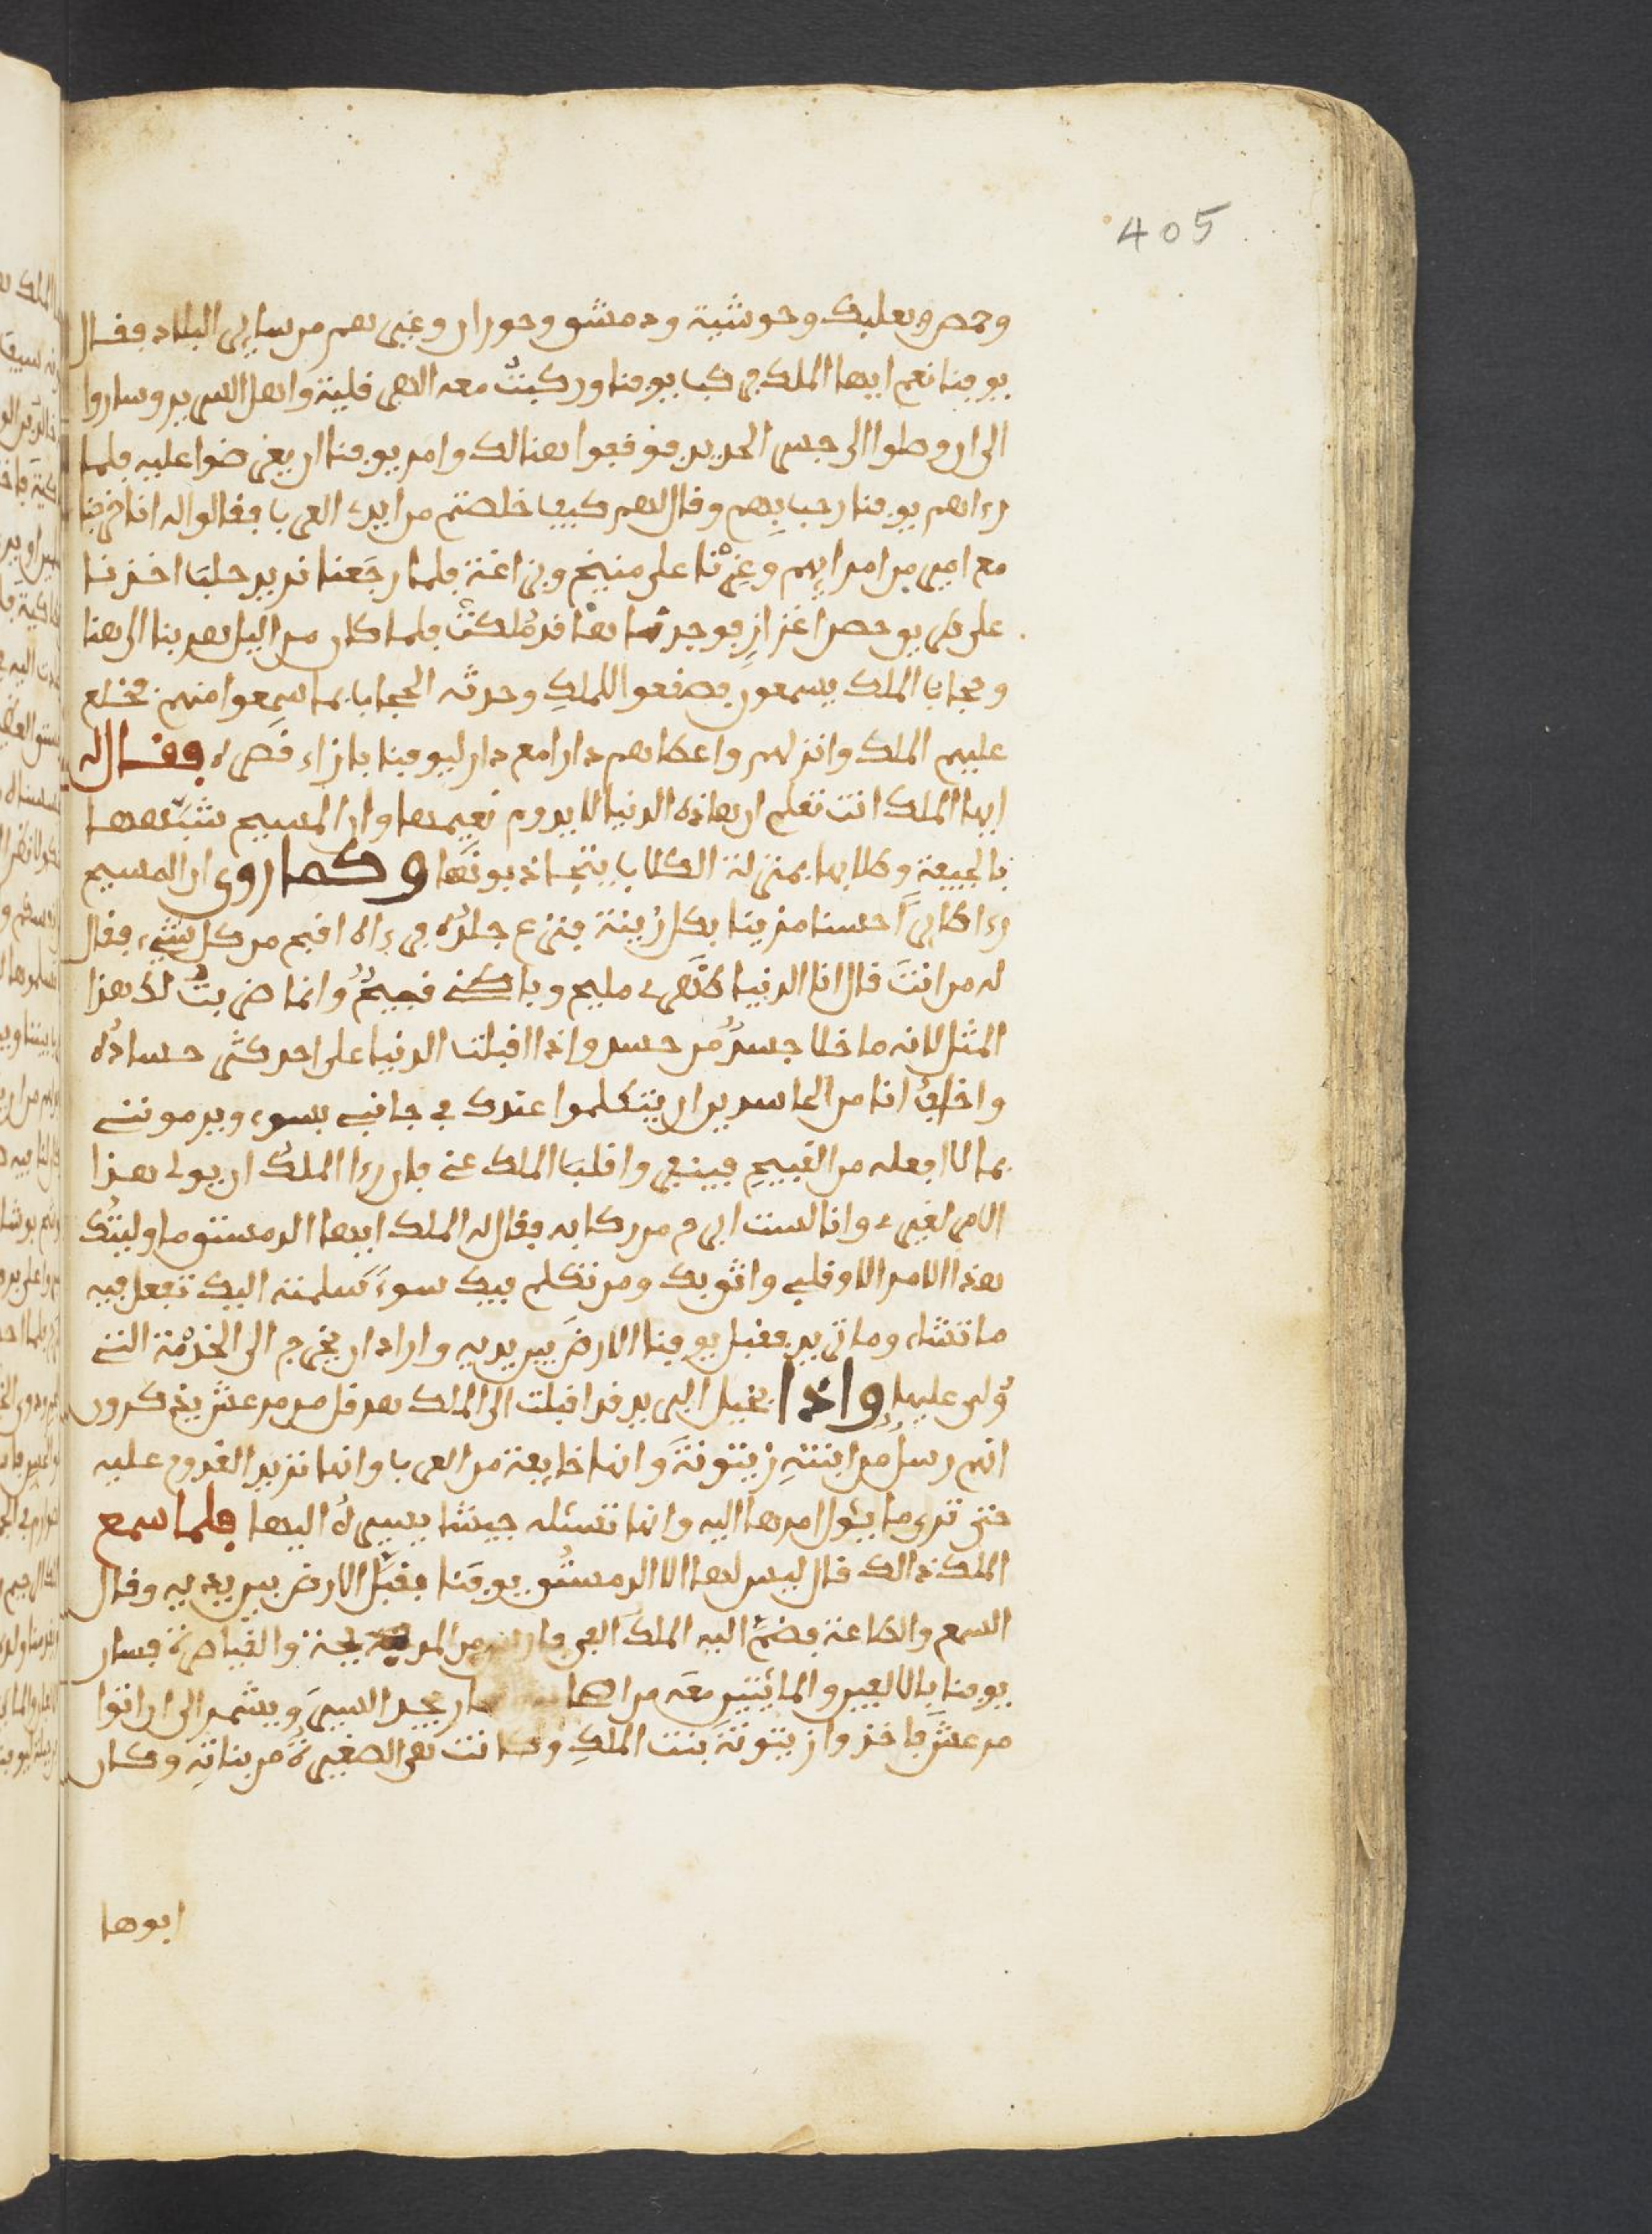 405
وحمص وبعلبك وجوشية ودمشق وحوران وغيرهم من ساير البلاد فقال
يوفنا نعم ايها الملك فركب يوفنا وركبت معه الاهرقلية واهل السرير وساروا
الى ان وصلوا الى جسر الحديد فوقفوا هنالك وامر يوفنا ان يعرضوا عليه فلما
رءاهم يوفنا رحب بهم وقال لهم كيف خلصتم من ايدي العرب فقالوا له انا خرجنا
مع امير من امرايهم وغرنا على منبج وبزاغة فلما رجعنا نريد حلب اخذنا
على طريق حصن اعزاز فوجدناها قد ملكت فلما كان من اليل هربنا الى هنا
وحجاب الملك يسمعون فصقعوا للملك وحدثه الحجاب بما سمعوا منهم فخلع
عليهم الملك وانزلهم واعطاهم دارا مع دار ليوفنا بازاء قصره فقال له
ايها الملك انت تعلم ان هاذه الدنيا لا يدوم نعيمها وان المسيح شبهها
بالجيفة وطلابها بمنزلة الكلاب يتجاذبونها وكما روي ان المسيح
رءا طايرا حسنا مزينا بكل زينة فنزع جلده فرءاه اقبح من كل شيء فقال
له من انت قال انا الدنيا ظاهري مليح وباطني قبيح وانما ضربت لك هذا
المثل لانه ما خلا جسد من حسد واذا اقبلت الدنيا على احد كثر حساده
واخاف انا من الحاسدين ان يتكلموا عندك في جانبي بسوء ويرموننى
بما لا افعله من القبيح فينفر قلب الملك عني فان رءا الملك ان يولي هذا
الامر لغيري وانا لست ابرح من ركابه فقال له الملك ايها الدمستق ما وليتك
هذا الامر الا وقلبي واثق بك ومن تكلم فيك سوء سلمته اليك تفعل فيه
ما تشاء وما تريد فقبل يوفنا الارض بين يديه واراد ان يخرج الى الخدمة التى
ولى عليها واذا بخيل البريد قد اقبلت الى الملك هرقل من مرعش يذكرون
انهم رسل من ابنته زيتونة وانها خايفة من العرب وانها تريد القدوم عليه
حتى ترى ما يئول امرها اليه وانها تسئله جيشا يسيره اليها فلما سمع
الملك ذالك قال ليس لها الا الدمستق يوفنا فقبل الارض بين يديه وقال
السمع والطاعة فضم اليه الملك الفي فارس من المدبجة والقياصرة فسار
يوفنا بالالفين والمائتين معه من اصحابه وسار يجد السير ويشمر الى ان اتوا
مرعش فاخذوا زيتونة بنت الملك وكانت هي الصغيرة من بناته وكان
ابوها